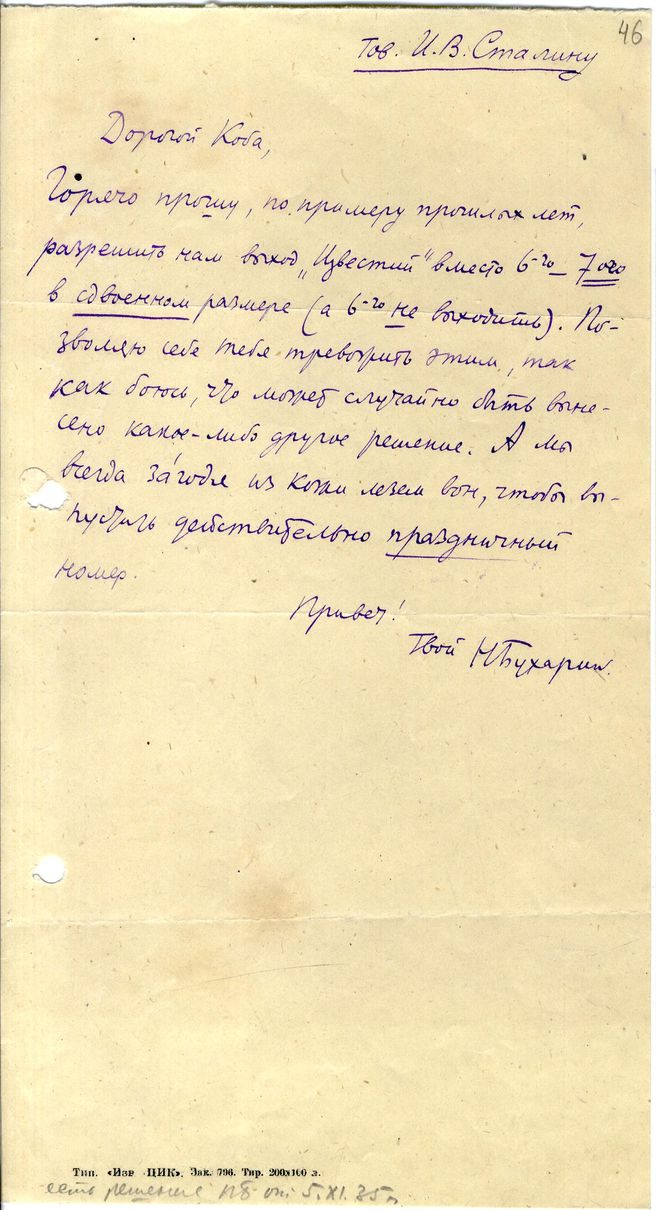 46
Тов. И. В. Сталину
Дорогой Коба,
Горячо прошу, по примеру прошлых лет,
разрешить нам выход „Известий" вместо 6-го 7ого
в сдвоенном размере (а 6-го не выходить). По-
зволяю себе тебя тревожить этим, так
как боюсь, что может случайно быть выне-
сено какое-либо другое решение. А мы
всегда за́годя из кожи лезем вон, чтобы вы-
пустить действительно праздничный
номер.
Привет!
Твой Н Бухарин.
Тип. «Изв ЦИК». Зак. 796. Тир. 200х100 л.
есть решение ПБ от 5.XI.35 г.